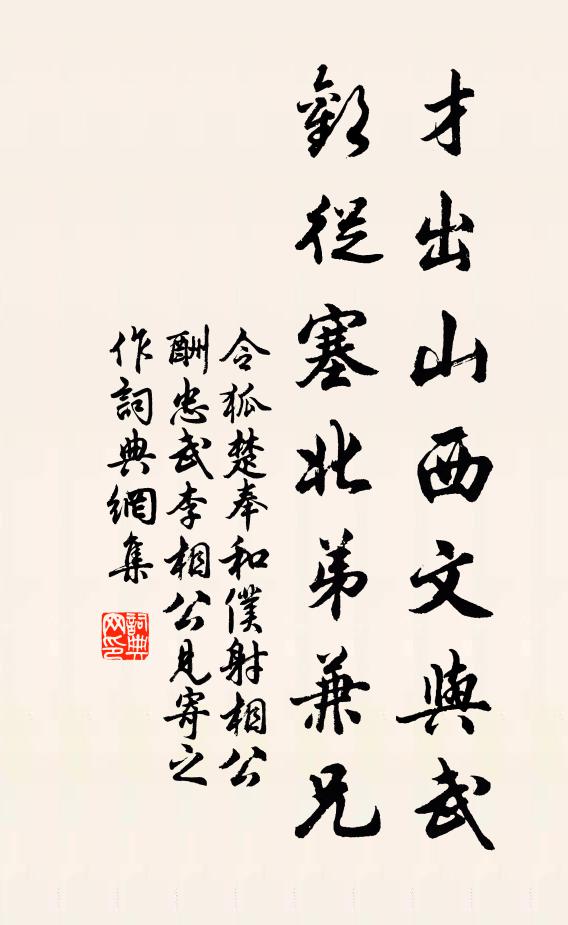 才出山西文與武
歡從塞北弟兼兄
令狐楚奉和僕射相公
酬忠武李相公見寄之
作詞典網集
詞典
网印